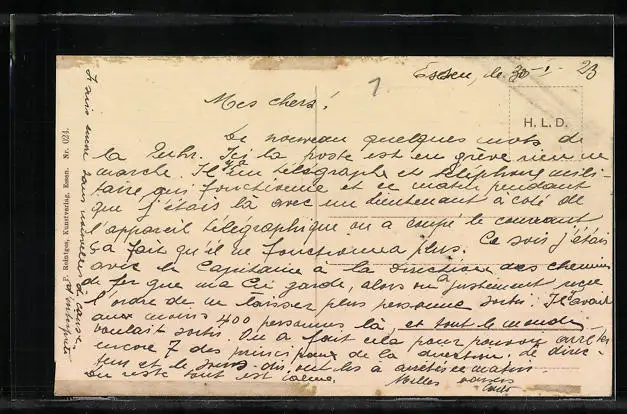 Essen, le 30-1-23
1.
Mes chers!
H. L. D.
De nouveau quelques mots de
la Ruhr. Ici la poste est en grève rien ne
marche. Il y a un télégraphe et téléphone mili-
taire qui fonctionne et ce matin pendant
que j'étais là avec un lieutenant à côté de
l'appareil télégraphique on a coupé le courant
ça fait qu'il ne fonctionna plus. Ce soir j'étais
avec le Capitaine à la Direction des chemins
de fer que ma Cie garde, alors on a justement reçu
l'ordre de ne laisser plus personne sortir. Il y avait
au moins 400 personnes là, et tout le monde
voulait sortir. On a fait cela pour pouvoir arrêter
encore 7 des principaux de la direction, le direc-
teur et le sous-dir. on les a arrêtés ce matin.
Du reste tout est calme.
Milles baisers
Je suis encore sans nouvelles à cause
F. Reintges, Kunstverlag, Essen. Nr. 024.